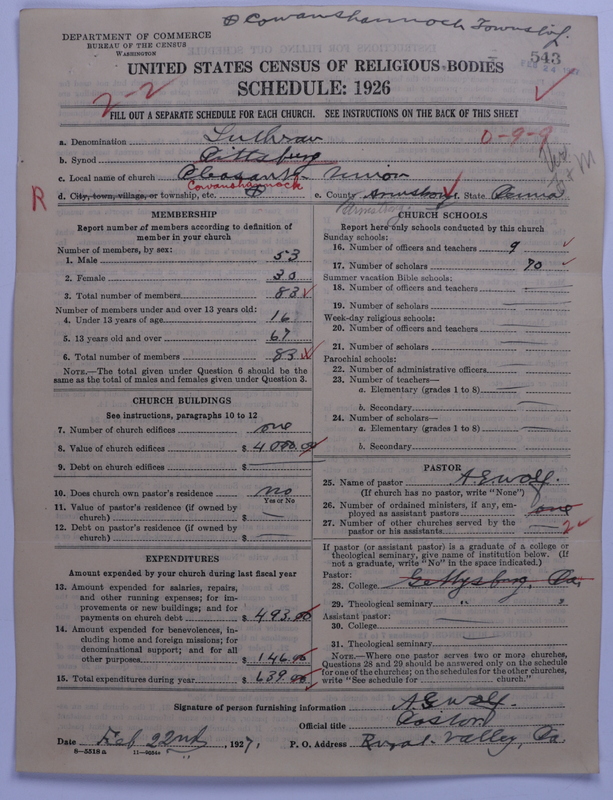 Cowanshannock Township.
DEPARTMENT OF COMMERCE
BUREAU OF THE CENSUS
WASHINGTON
543
UNITED STATES CENSUS OF RELIGIOUS BODIES
SCHEDULE: 1926
2-2
FILL OUT A SEPARATE SCHEDULE FOR EACH CHURCH. SEE INSTRUCTIONS ON THE BACK OF THIS SHEET
a. Denomination Luthran 0-9-9
b. Synod Pittsburg
c. Local name of church Pleasant Union
Cowanshannock
R
d. City, town, village, or township, etc. e. County Armstrong. State Penna
Armstrong
MEMBERSHIP
Report number of members according to definition of
member in your church
Number of members, by sex:
1. Male 53
2. Female 30
3. Total number of members 83
Number of members under and over 13 years old:
4. Under 13 years of age 16
5. 13 years old and over 67
6. Total number of members 83
NOTE.—The total given under Question 6 should be the
same as the total of males and females given under Question 3.
CHURCH BUILDINGS
See instructions, paragraphs 10 to 12
7. Number of church edifices one
8. Value of church edifices $ 4000.00
9. Debt on church edifices $
10. Does church own pastor's residence no
Yes or No
11. Value of pastor's residence (if owned by
church) $
12. Debt on pastor's residence (if owned by
church) $
EXPENDITURES
Amount expended by your church during last fiscal year
13. Amount expended for salaries, repairs,
and other running expenses; for im-
provements or new buildings; and for
payments on church debt $ 493.00
14. Amount expended for benevolences, in-
cluding home and foreign missions; for
denominational support; and for all
other purposes $ 146.00
15. Total expenditures during year $ 639.00
CHURCH SCHOOLS
Report here only schools conducted by this church
Sunday schools:
16. Number of officers and teachers 9
17. Number of scholars 70
Summer vacation Bible schools:
18. Number of officers and teachers
19. Number of scholars
Week-day religious schools:
20. Number of officers and teachers
21. Number of scholars
Parochial schools:
22. Number of administrative officers
23. Number of teachers—
a. Elementary (grades 1 to 8)
b. Secondary
24. Number of scholars—
a. Elementary (grades 1 to 8)
b. Secondary
PASTOR
25. Name of pastor A. E. Wolf.
(If church has no pastor, write "None")
26. Number of ordained ministers, if any, em-
ployed as assistant pastors
27. Number of other churches served by the
pastor or his assistants 2
If pastor (or assistant pastor) is a graduate of a college or
theological seminary, give name of institution below. (If
not a graduate, write "No" in the space indicated.)
Pastor:
28. College Gettysburg, Pa.
29. Theological seminary " "
Assistant pastor:
30. College
31. Theological seminary
NOTE.—Where one pastor serves two or more churches,
Questions 28 and 29 should be answered only on the schedule
for one of the churches; on the schedules for the other churches,
write "See schedule for church."
Signature of person furnishing information A E Wolf.
Official title Pastor
Date Feb 22nd, 1927, P. O. Address Rural Valley, Pa
8—5518 a